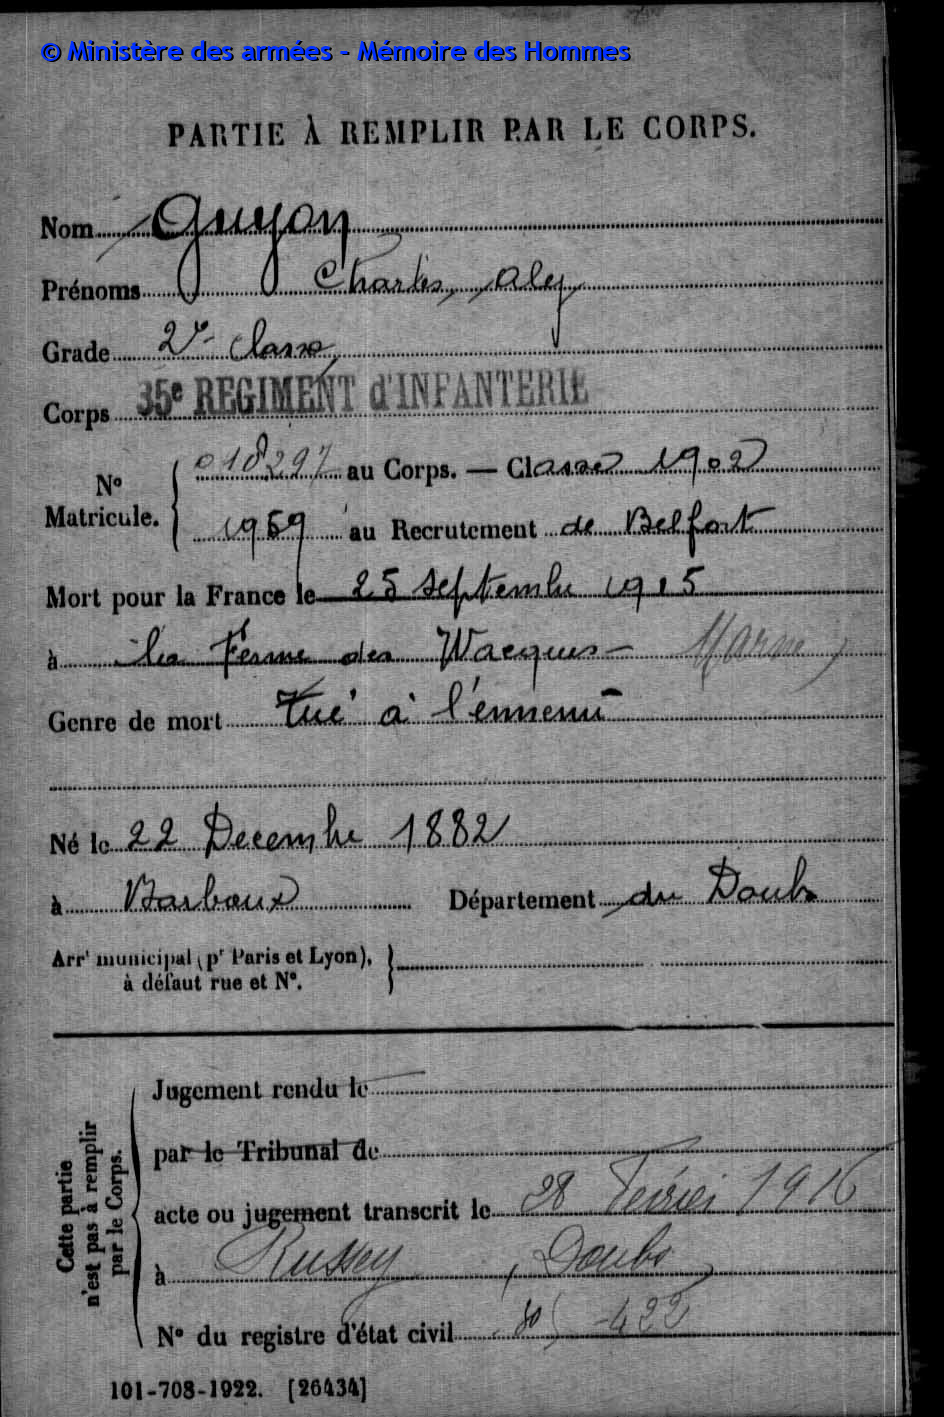 © Ministère des armées - Mémoire des Hommes
PARTIE À REMPLIR PAR LE CORPS.
Nom Guyon
Prénoms Charles, Aly
Grade 2e classe,
Corps 35e REGIMENT d'INFANTERIE
018297 au Corps. — Classe 1902
N° Matricule.
1959 au Recrutement de Belfort
Mort pour la France le 25 septembre 1915
à la Ferme des Wacques - Marne
Genre de mort Tué à l'ennemi
Né le 22 Decembre 1882
à Barboux Département du Doubs
Arrt municipal (pr Paris et Lyon),
à défaut rue et N°.
Cette partie
n'est pas à remplir
par le Corps.
Jugement rendu le
par le Tribunal de
acte ou jugement transcrit le 28 Février 1916
à Russey, Doubs
N° du registre d'état civil
101-708-1922. [26434]